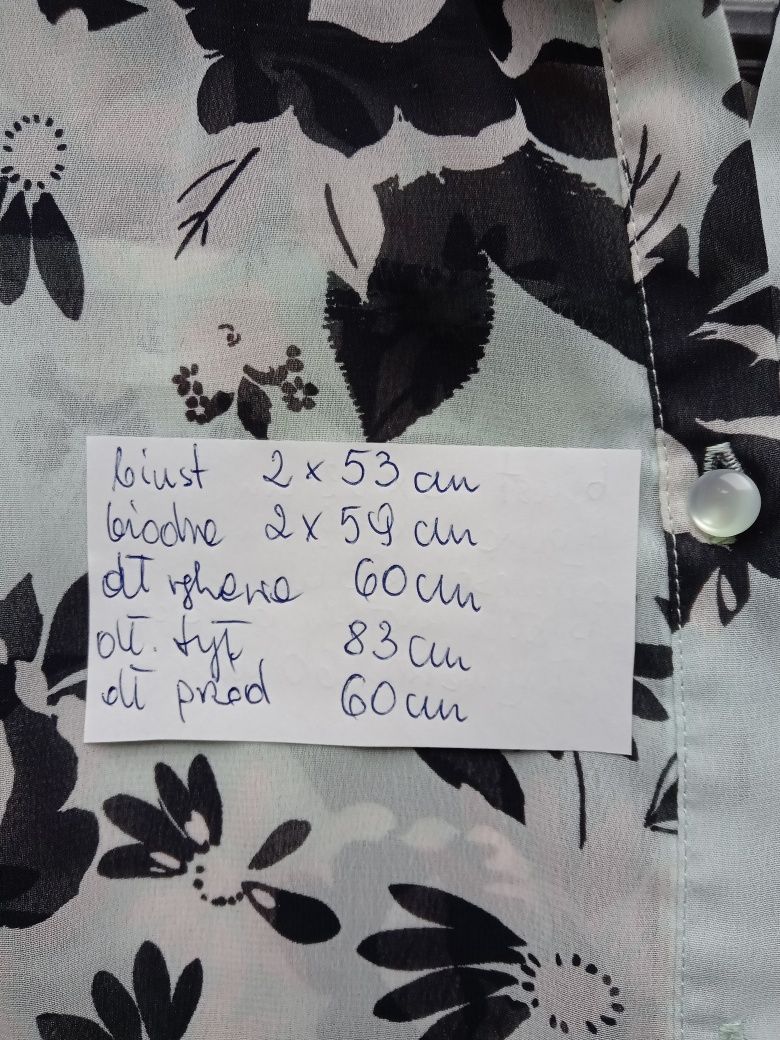 biust 2 x 53 cm
biodra 2 x 59 cm
dł rękawa 60 cm
dł. tył 83 cm
dł przód 60 cm